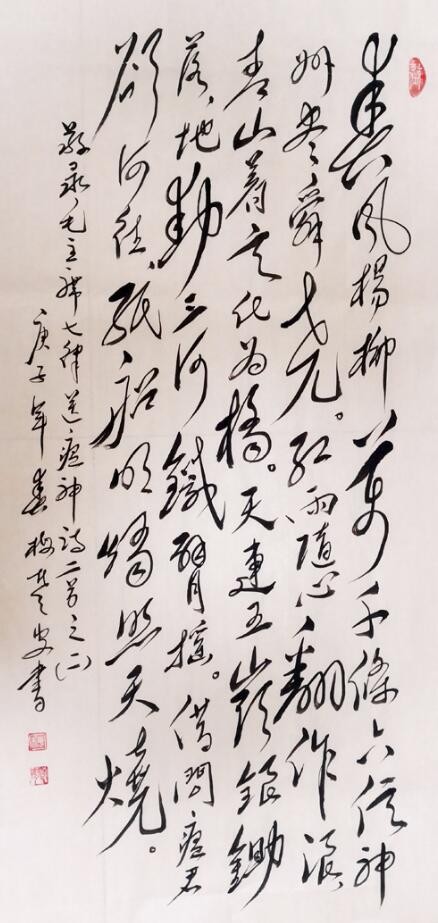 春风杨柳万千條六億神
州尽舜尧。红雨随心翻作浪、
青山着意化为橋。天連五嶺銀鋤
落、地動三河鐵臂摇。借問瘟君
欲何往、纸船明燭照天燒。
敬录毛主席七律送瘟神詩二首之(二)
庚子年春書